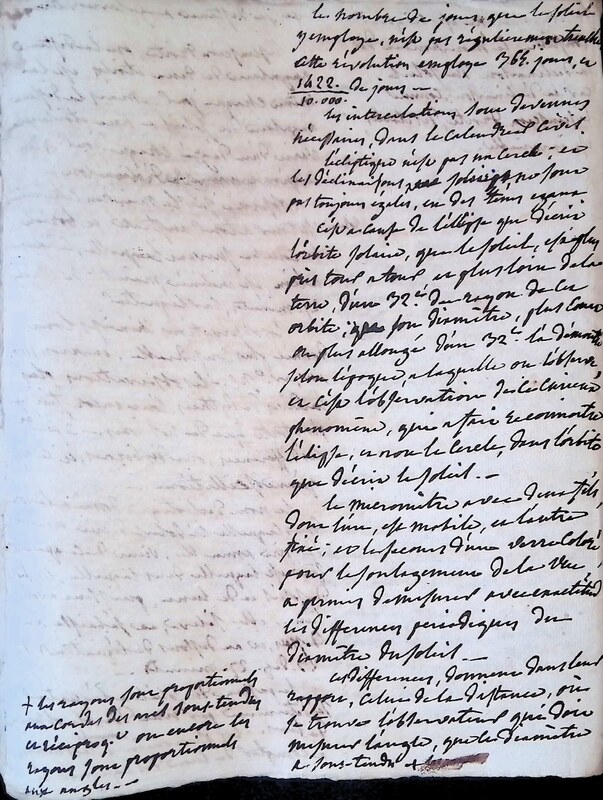 le nombre de jours que le soleil
y employe, n'est pas régulierement
cette révolution employe 365. jours, et
1422.
10.000. de jours —
les intercalations sont devenues
nécessaires, dans le calendrier civil.
l'écliptique n'est pas un cercle; et
les déclinaisons ne sont
pas toujours égales, en des tems égaux
c'est a cause de l'éllipse que décrit
l'orbite solaire, que le soleil, est plus
près tour a tour et plus loin de la
terre, d'un 32.e du rayon de cet
orbite; son diamètre, plus court
ou plus allongé d'un 32.e le démontre
selon l'époque, a laquelle on l'observe
et c'est l'observation de ce curieux
phenomène, qui a fait reconnoitre
l'éllipse, et non le cercle, dans l'orbite
que décrit le soleil. —
le micromètre avec deux fils,
dont l'un, est mobile, et l'autre
fixé; et le secours d'un verre coloré
pour le soulagement de la vue,
a permis de mesurer avec exactitude
les differences periodiques du
diamètre du soleil. —
ces differences, donnent dans leur
rapport, celui de la distance, où
se trouve l'observateur qui doit
mesurer l'angle, que le diametre
a sous-tendu +
+ les rayons sont proportionnels
aux cordes des arcs sous-tendus
et réciproq.t ou encore les
rayons sont proportionnels
aux angles. —